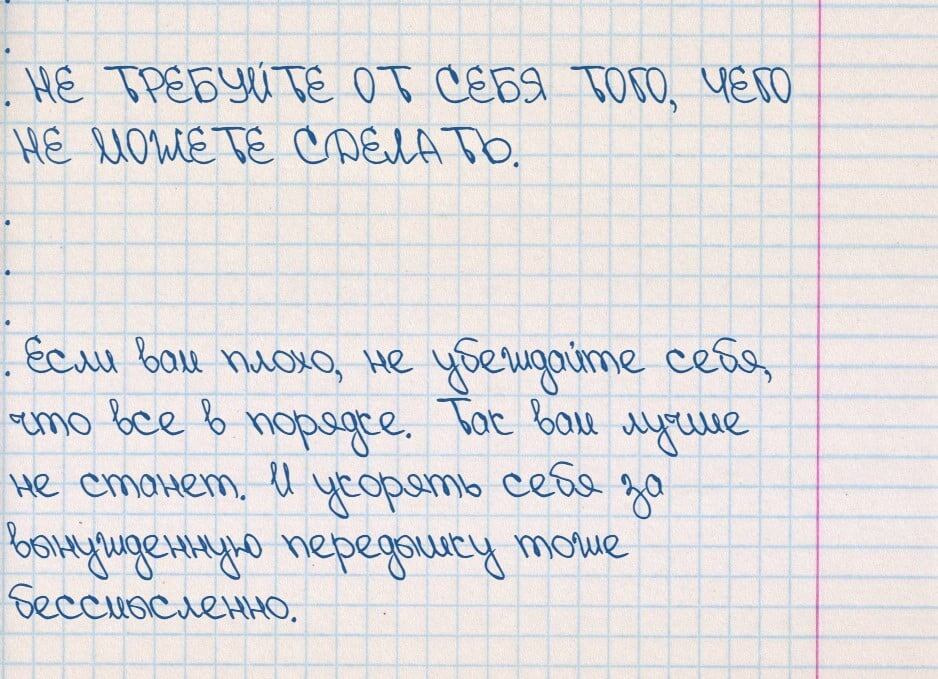 НЕ ТРЕБУЙТЕ ОТ СЕБЯ ТОГО, ЧЕГО
НЕ МОЖЕТЕ СДЕЛАТЬ.
Если вам плохо, не убеждайте себя,
что все в порядке. Так вам лучше
не станет. И укорять себя за
вынужденную передышку тоже
бессмысленно.